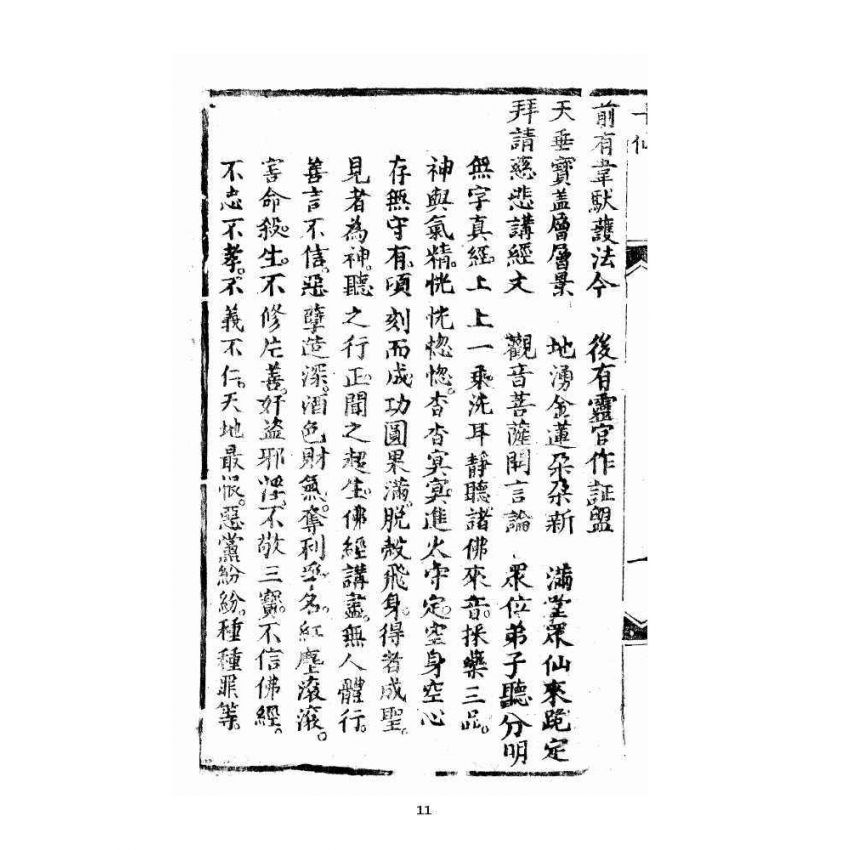 前有韋馱護法令 後有靈官作証盟
天垂寶盖層層景 地湧金蓮朵朵新 滿堂眾仙來跪定
拜請慈悲講經文 觀音菩薩開言論 眾位弟子聽分明
無字真經。上上一乘。洗耳靜聽。諸佛來音。採藥三品。
神與氣精。恍恍惚惚。杳杳冥冥。進火守定。空身空心
存無守有。頃刻而成。功圓果滿。脫殼飛身。得者成聖。
見者為神。聽之行正。聞之超生。佛經講盡。無人體行。
善言不信。惡孽造深。酒色財氣。奪利爭名。紅塵滾滾。
害命殺生。不修片善。奸盜邪淫。不敬三寶。不信佛經。
不忠不孝。不義不仁。天地最恨。惡黨紛紛。種種罪等。
11